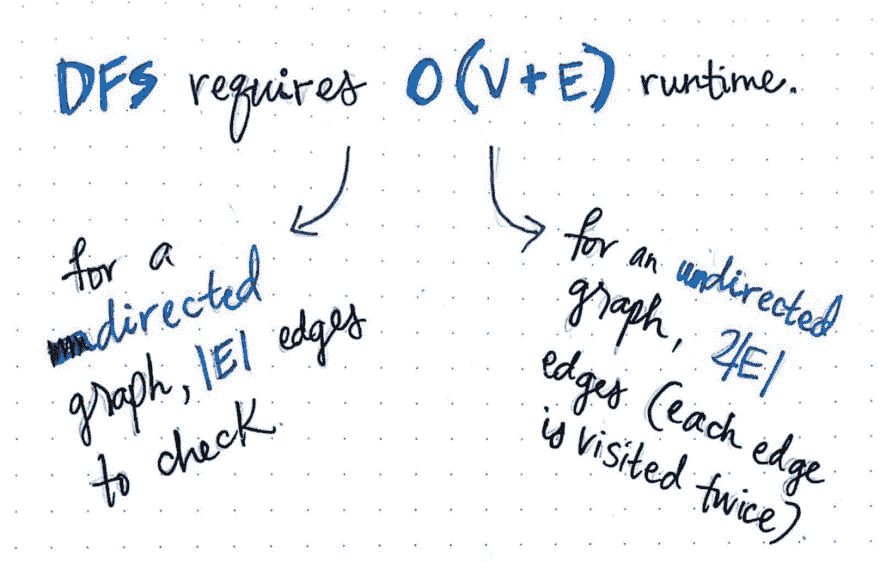 DFS requires O(V+E) runtime.
for a
directed
graph, |E| edges
to check
for an undirected
graph, 2|E|
edges (each edge
is visited twice)